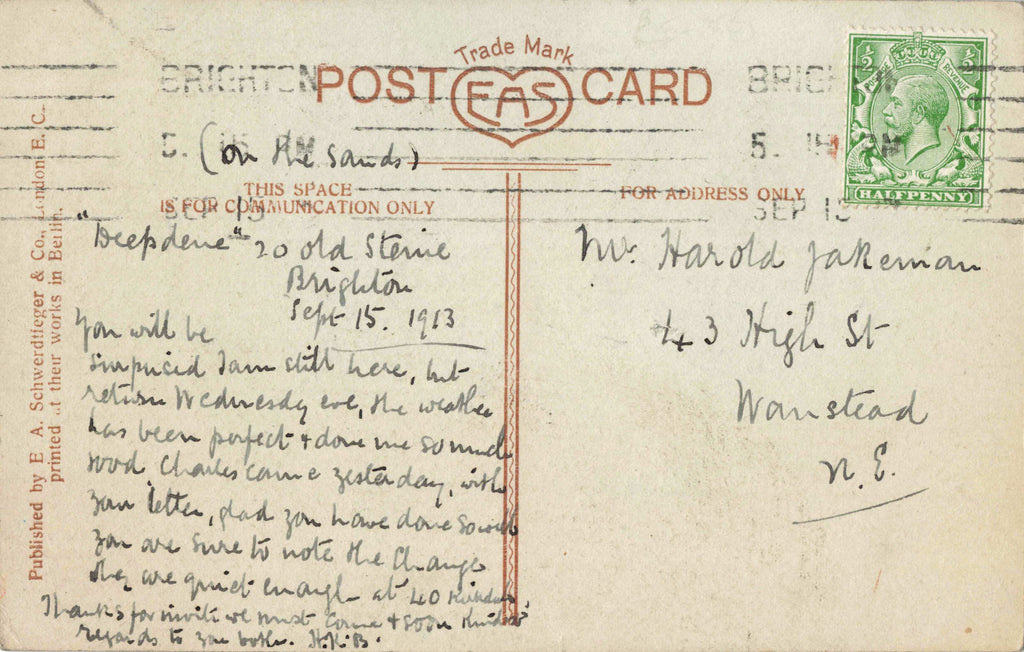 Trade Mark
POST EAS CARD
BRIGHTON
5. 15 PM
SEP 15
BRIGH
5. 15 PM
SEP 15
½ ½
POSTAGE REVENUE
HALFPENNY
(on the sands)
THIS SPACE
IS FOR COMMUNICATION ONLY
FOR ADDRESS ONLY
Published by E. A. Schwerdtfeger & Co., London E. C.
printed at their works in Berlin.
"Deepdene" 20 Old Steine
Brighton
Sept 15. 1913
You will be
surpriced I am still here, but
return Wednesday eve, the weather
has been perfect & done me so much
good Charles came yesterday, with
your letter, glad you have done so well
you are sure to note the change
they are quiet enough at 40
Thanks for invite we must come & soon kindest
regards to you both. H.K.B.
Mr. Harold Jakeman
43 High St
Wanstead
N.E.